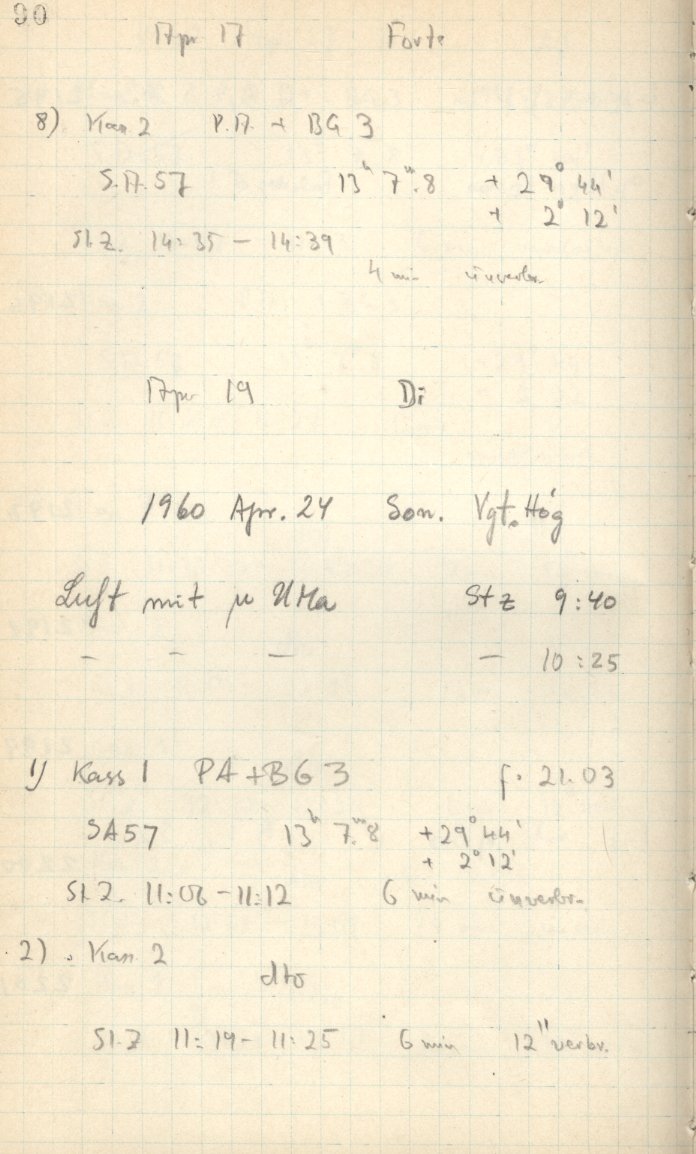 90
Apr 17 Forts.
8) Kass 2 P.A. + BG 3
S.A. 57 13ʰ 7ᵐ.8 + 29° 44'
+ 2° 12'
St.Z. 14:35 – 14:39
4 min unverbr.
Apr 19 Di
1960 Apr. 24 Son. Vgt. Hög
Luft mit μ UMa Stz 9:40
– – – – 10:25
1) Kass 1 PA + BG 3 f. 21.03
SA57 13ʰ 7ᵐ.8 + 29° 44'
+ 2° 12'
St.Z. 11:06 – 11:12 6 min unverbr.
2) Kass 2
dto
St.Z 11:19 – 11:25 6 min 12" verbr.